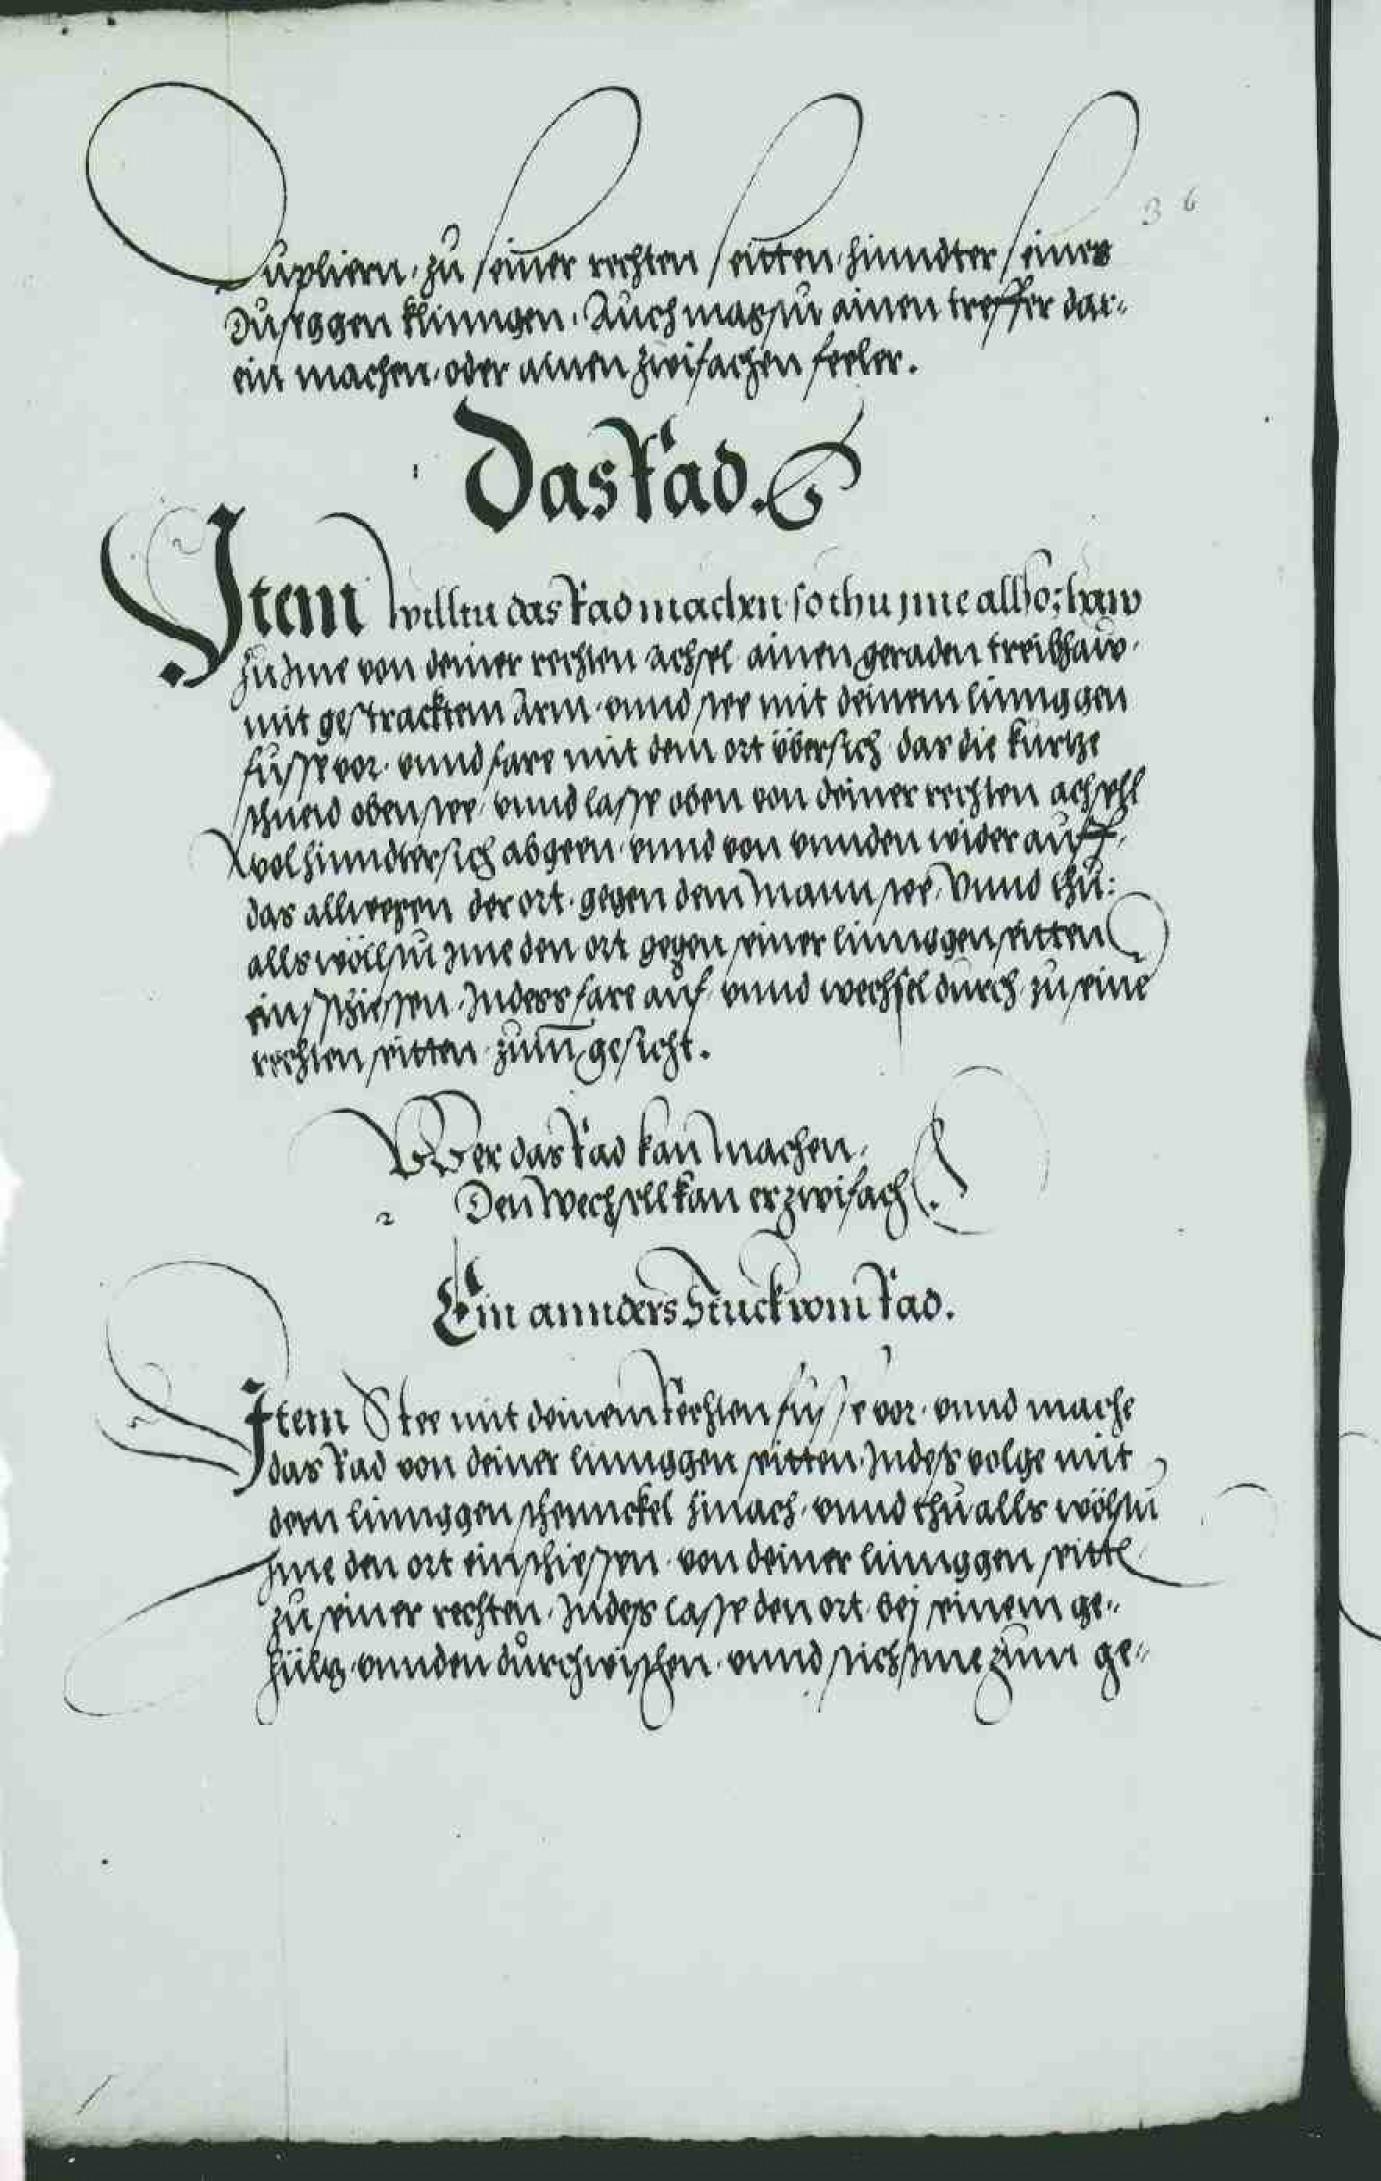 36
dupliern, zu seiner rechten seitten hinndter seiner
Duseggen klinngen. Auch magstu ainen treffer dar-
ein machen, oder ainen zwifachen feeler.
Das Rad.
Item willtu das Rad machen so thu jme allso: haw
zu Jme von deiner rechten achsel ainen geraden treibhaw,
mit gestracktem Arm, vnnd stee mit deinem linnggen
fusse vor, vnnd fare mit dem ort übersich das die kurtze
schneid oben stee, vnnd lasse oben von deiner rechten achsell
wol hinndtersich abgeen, vnnd von vnnden wider auff,
das allwegen der ort gegen dem Mann stee, Vnnd thu:
alls wöllstu Jme den ort gegen seiner linnggen seitten
einschiessen, Indess fare auf, vnnd wechsel durch, zu seine
rechten seitten zum̄ gesicht.
Wer das Rad kan machen,
Den Wechsell kan er zwifach.
Ein annders Stuck vom Rad.
Item Stee mit deinem Rechten fusse vor, vnnd mache
das Rad von deiner linnggen seitten, Indess volge mit
dem linnggen schennckel hinach, vnnd thu alls wölstu
Jme den ort einschiessen, von deiner linnggen seitte
zu seiner rechten, Indess lasse den ort bej seinem ge-
hültz, vnnden durchwischen, vnnd stich Jme zum ge-